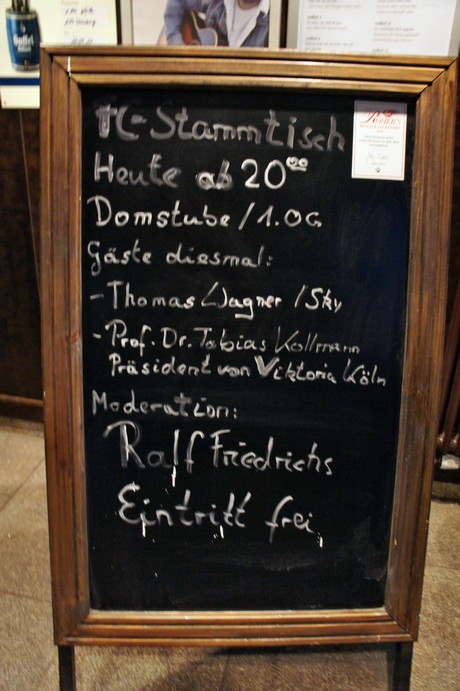 FC-Stammtisch
Heute ab 20⁰⁰
Domstube / 1. OG
Gäste diesmal:
- Thomas Wagner / Sky
- Prof. Dr. Tobias Kollmann
Präsident von Viktoria Köln
Moderation:
Ralf Friedrichs
Eintritt frei